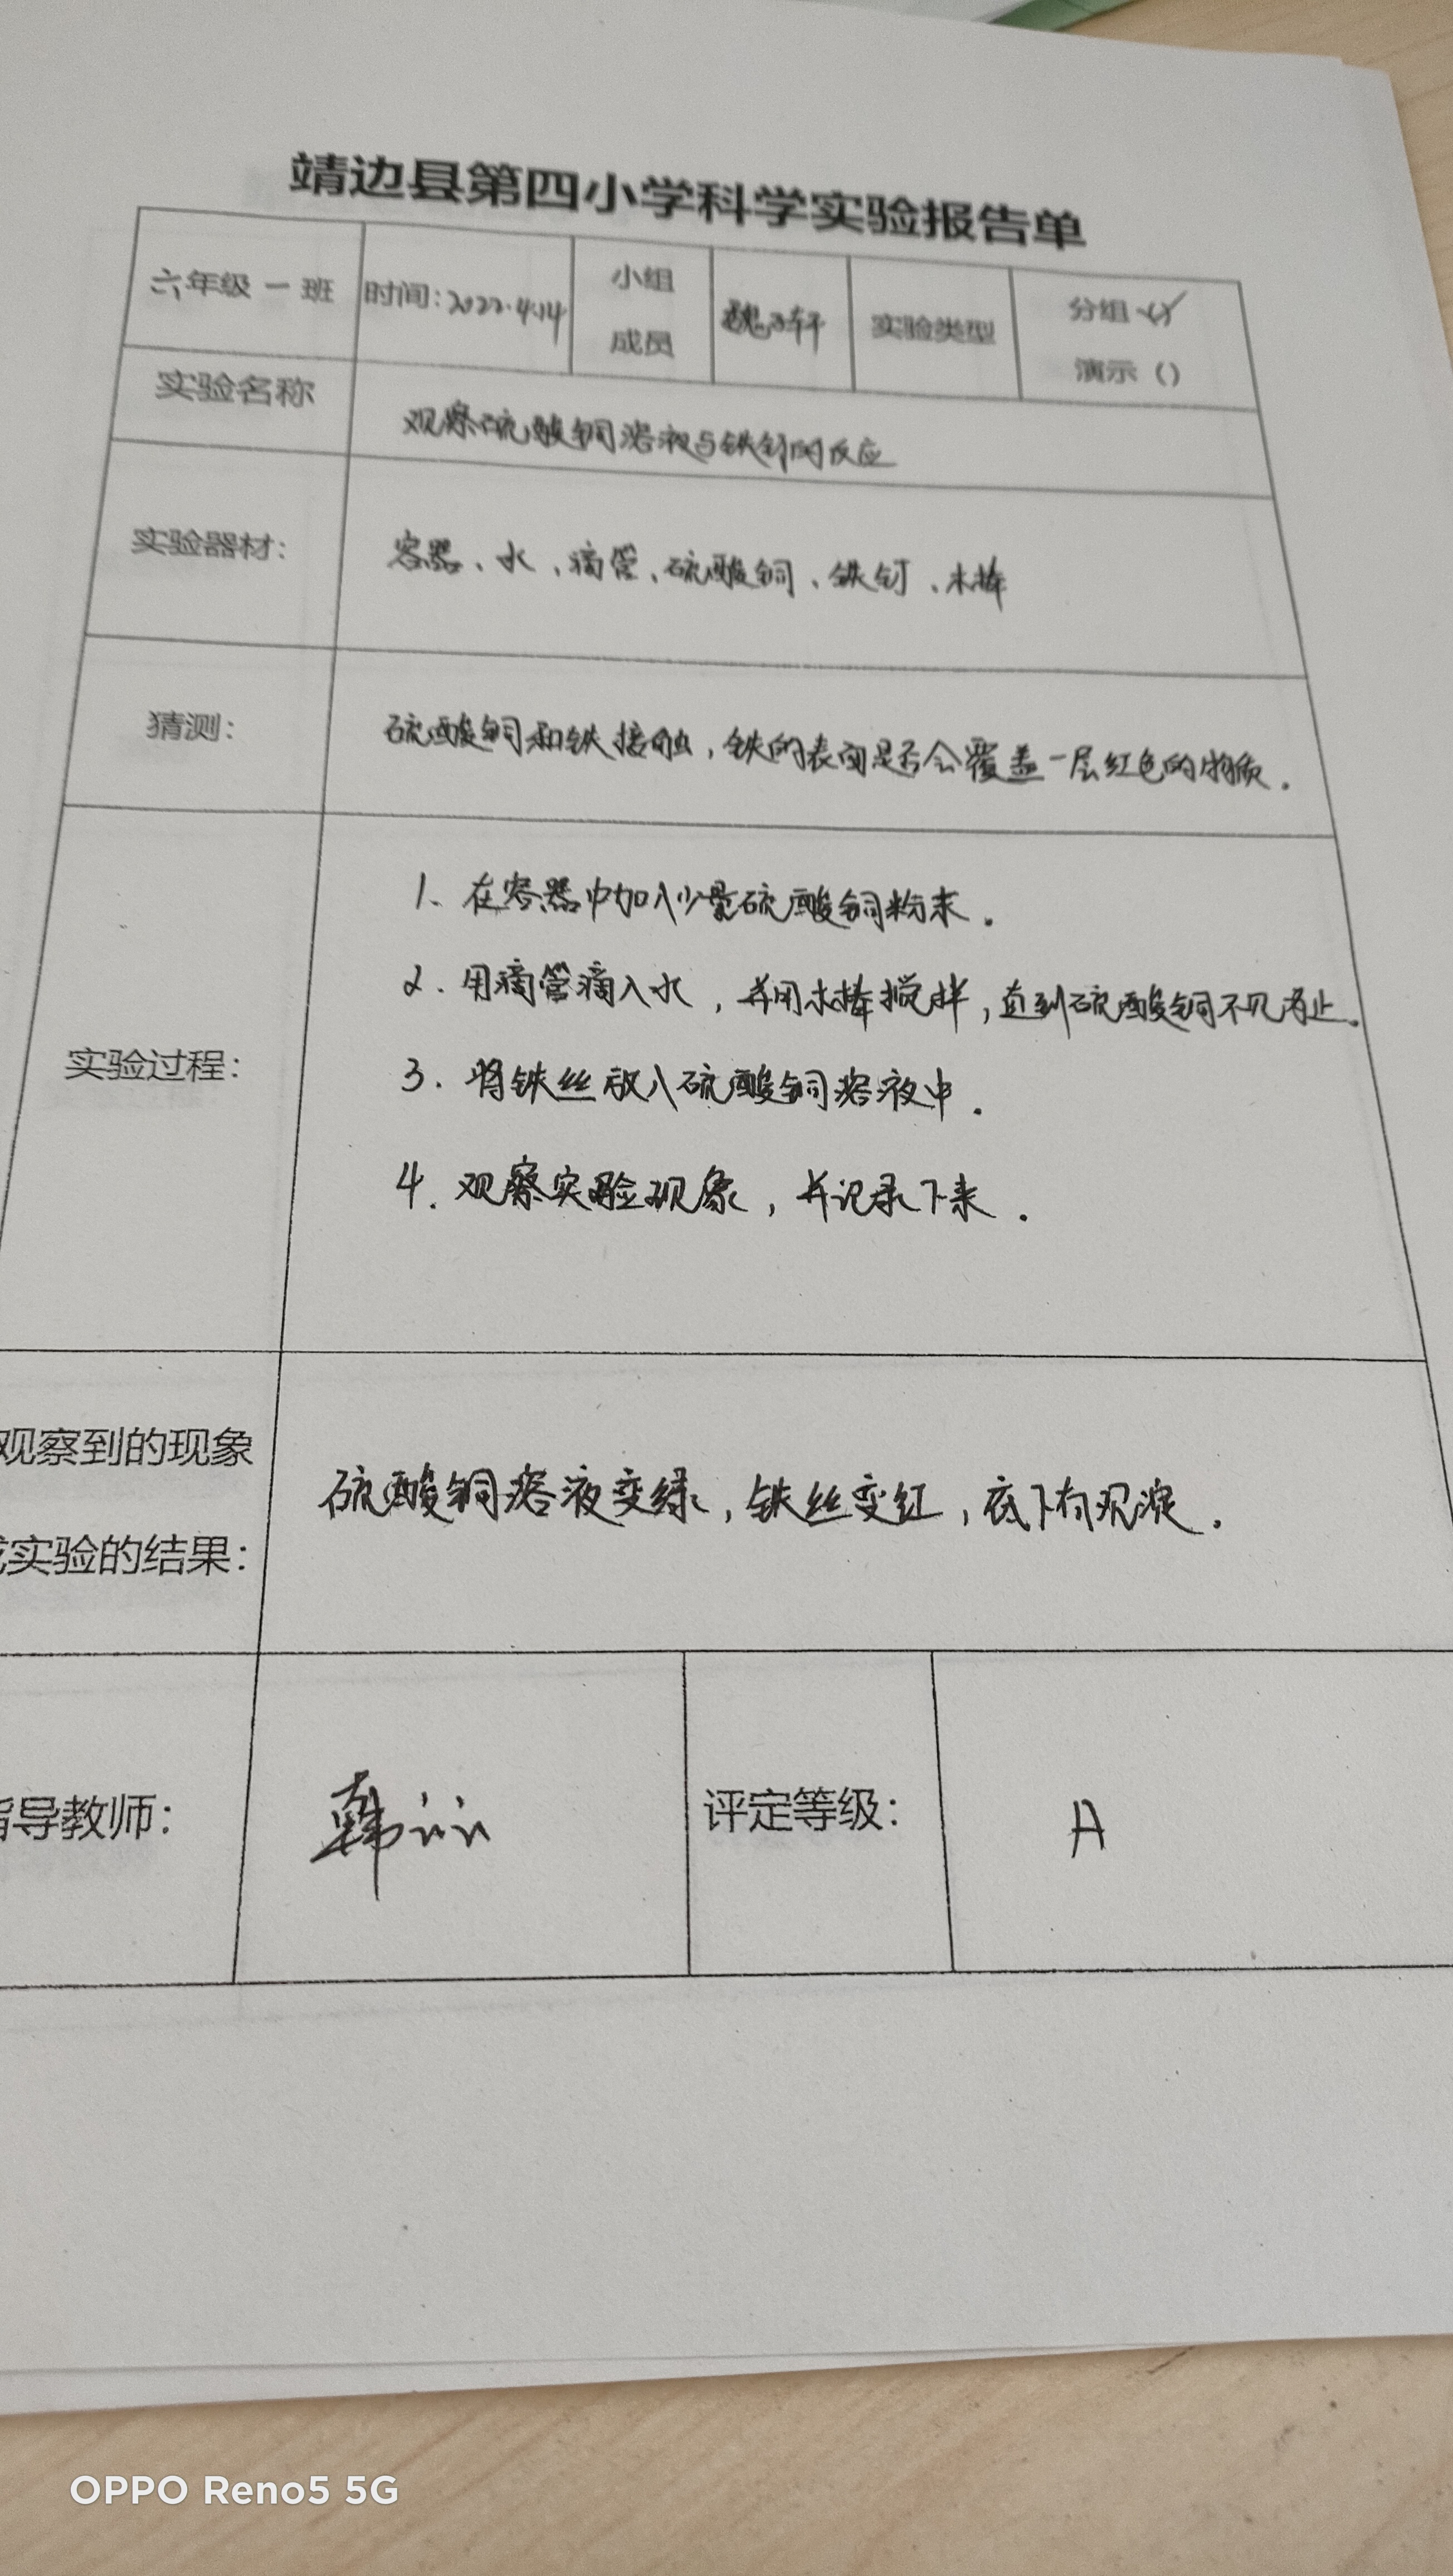 靖边县第四小学科学实验报告单
六年级 一 班 时间：2022.4.14 小组成员 魏子轩 实验类型 分组（√） 演示（）
实验名称 观察硫酸铜溶液与铁钉的反应
实验器材： 容器、水、滴管、硫酸铜、铁钉、木棒
猜测： 硫酸铜和铁接触，铁的表面是否会覆盖一层红色的物质.
实验过程：
1、在容器中加入少量硫酸铜粉末.
2. 用滴管滴入水，并用木棒搅拌，直到硫酸铜不见为止.
3. 将铁丝放入硫酸铜溶液中.
4. 观察实验现象，并记录下来.
观察到的现象
实验的结果： 硫酸铜溶液变绿，铁丝变红，底下有沉淀.
导教师： 韩 评定等级： A
OPPO Reno5 5G